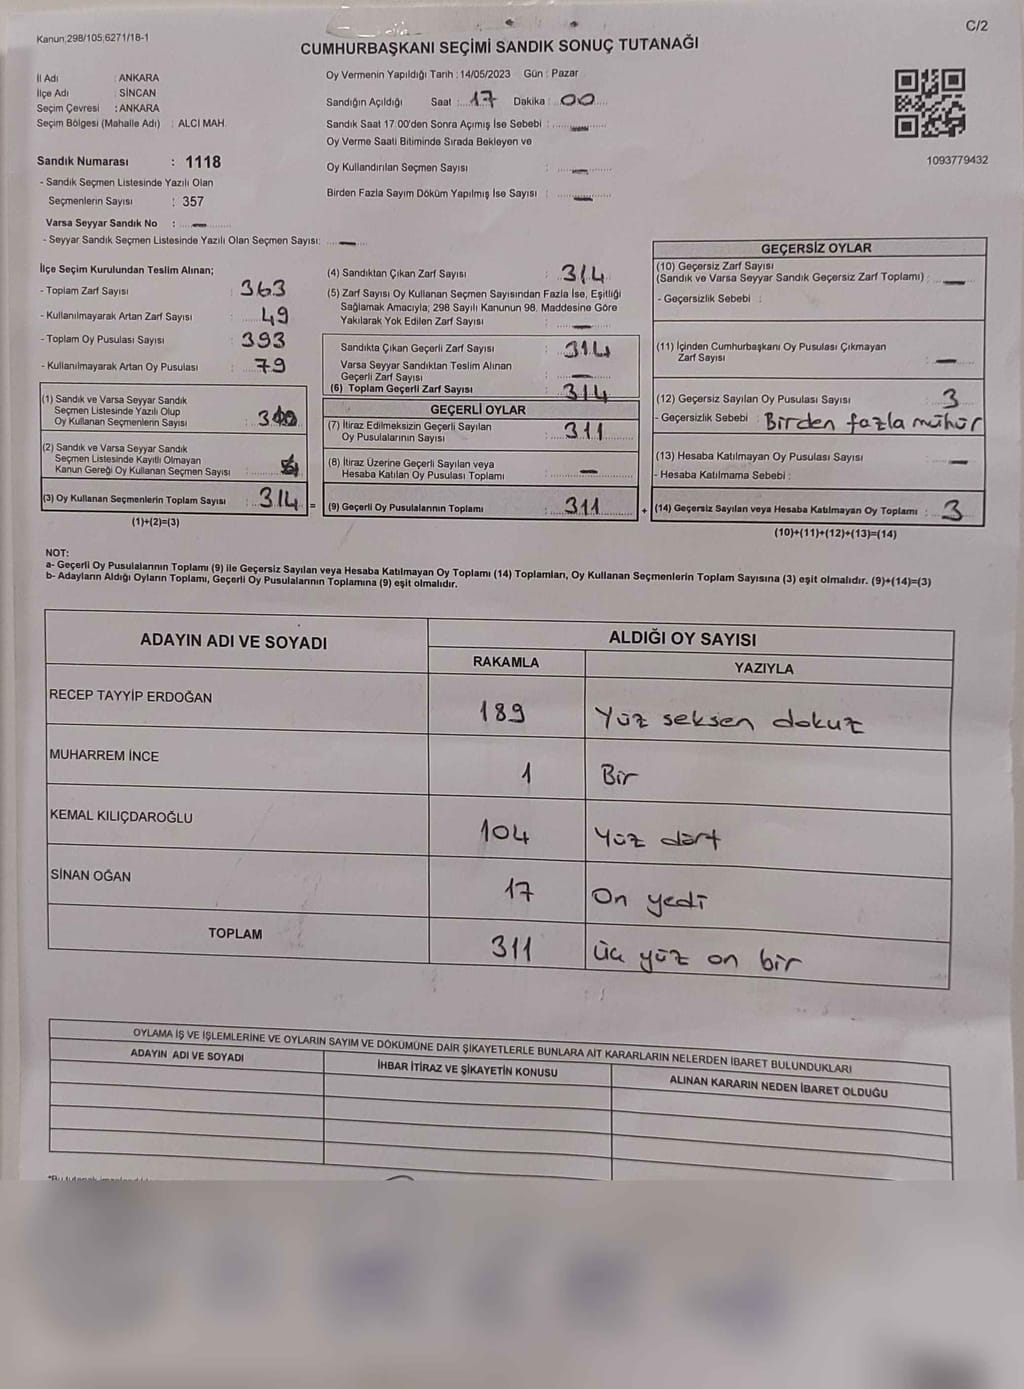 Kanun,298/105,6271/18-1
C/2
CUMHURBAŞKANI SEÇİMİ SANDIK SONUÇ TUTANAĞI
İl Adı : ANKARA
İlçe Adı : SİNCAN
Seçim Çevresi : ANKARA
Seçim Bölgesi (Mahalle Adı) : ALCI MAH.
Sandık Numarası : 1118
- Sandık Seçmen Listesinde Yazılı Olan
Seçmenlerin Sayısı : 357
Varsa Seyyar Sandık No : —
- Seyyar Sandık Seçmen Listesinde Yazılı Olan Seçmen Sayısı: —
Oy Vermenin Yapıldığı Tarih : 14/05/2023 Gün : Pazar
Sandığın Açıldığı Saat : 17 Dakika : 00
Sandık Saat 17.00'den Sonra Açımış İse Sebebi : —
Oy Verme Saati Bitiminde Sırada Bekleyen ve
Oy Kullandırılan Seçmen Sayısı : —
Birden Fazla Sayım Döküm Yapılmış İse Sayısı : —
1093779432
İlçe Seçim Kurulundan Teslim Alınan;
- Toplam Zarf Sayısı : 363
- Kullanılmayarak Artan Zarf Sayısı : 49
- Toplam Oy Pusulası Sayısı : 393
- Kullanılmayarak Artan Oy Pusulası : 79
(1) Sandık ve Varsa Seyyar Sandık
Seçmen Listesinde Yazılı Olup
Oy Kullanan Seçmenlerin Sayısı :
(2) Sandık ve Varsa Seyyar Sandık
Seçmen Listesinde Kayıtlı Olmayan
Kanun Gereği Oy Kullanan Seçmen Sayısı :
(3) Oy Kullanan Seçmenlerin Toplam Sayısı : 314 =
(1)+(2)=(3)
(4) Sandıktan Çıkan Zarf Sayısı : 314
(5) Zarf Sayısı Oy Kullanan Seçmen Sayısından Fazla İse, Eşitliği
Sağlamak Amacıyla; 298 Sayılı Kanunun 98. Maddesine Göre
Yakılarak Yok Edilen Zarf Sayısı : —
Sandıkta Çıkan Geçerli Zarf Sayısı : 314
Varsa Seyyar Sandıktan Teslim Alınan
Geçerli Zarf Sayısı : —
(6) Toplam Geçerli Zarf Sayısı : 314
GEÇERLİ OYLAR
(7) İtiraz Edilmeksizin Geçerli Sayılan
Oy Pusulalarının Sayısı : 311
(8) İtiraz Üzerine Geçerli Sayılan veya
Hesaba Katılan Oy Pusulası Toplamı : —
(9) Geçerli Oy Pusulalarının Toplamı : 311 +
GEÇERSİZ OYLAR
(10) Geçersiz Zarf Sayısı
(Sandık ve Varsa Seyyar Sandık Geçersiz Zarf Toplamı) : —
- Geçersizlik Sebebi :
(11) İçinden Cumhurbaşkanı Oy Pusulası Çıkmayan
Zarf Sayısı : —
(12) Geçersiz Sayılan Oy Pusulası Sayısı : 3
- Geçersizlik Sebebi : Birden fazla mühür
(13) Hesaba Katılmayan Oy Pusulası Sayısı : —
- Hesaba Katılmama Sebebi :
(14) Geçersiz Sayılan veya Hesaba Katılmayan Oy Toplamı : 3
(10)+(11)+(12)+(13)=(14)
NOT:
a- Geçerli Oy Pusulalarının Toplamı (9) ile Geçersiz Sayılan veya Hesaba Katılmayan Oy Toplamı (14) Toplamları, Oy Kullanan Seçmenlerin Toplam Sayısına (3) eşit olmalıdır. (9)+(14)=(3)
b- Adayların Aldığı Oyların Toplamı, Geçerli Oy Pusulalarının Toplamına (9) eşit olmalıdır.
ADAYIN ADI VE SOYADI
ALDIĞI OY SAYISI
RAKAMLA YAZIYLA
RECEP TAYYİP ERDOĞAN 189 Yüz seksen dokuz
MUHARREM İNCE 1 Bir
KEMAL KILIÇDAROĞLU 104 Yüz dört
SİNAN OĞAN 17 On yedi
TOPLAM 311 Üç yüz on bir
OYLAMA İŞ VE İŞLEMLERİNE VE OYLARIN SAYIM VE DÖKÜMÜNE DAİR ŞİKAYETLERLE BUNLARA AİT KARARLARIN NELERDEN İBARET BULUNDUKLARI
ADAYIN ADI VE SOYADI
İHBAR İTİRAZ VE ŞİKAYETİN KONUSU
ALINAN KARARIN NEDEN İBARET OLDUĞU